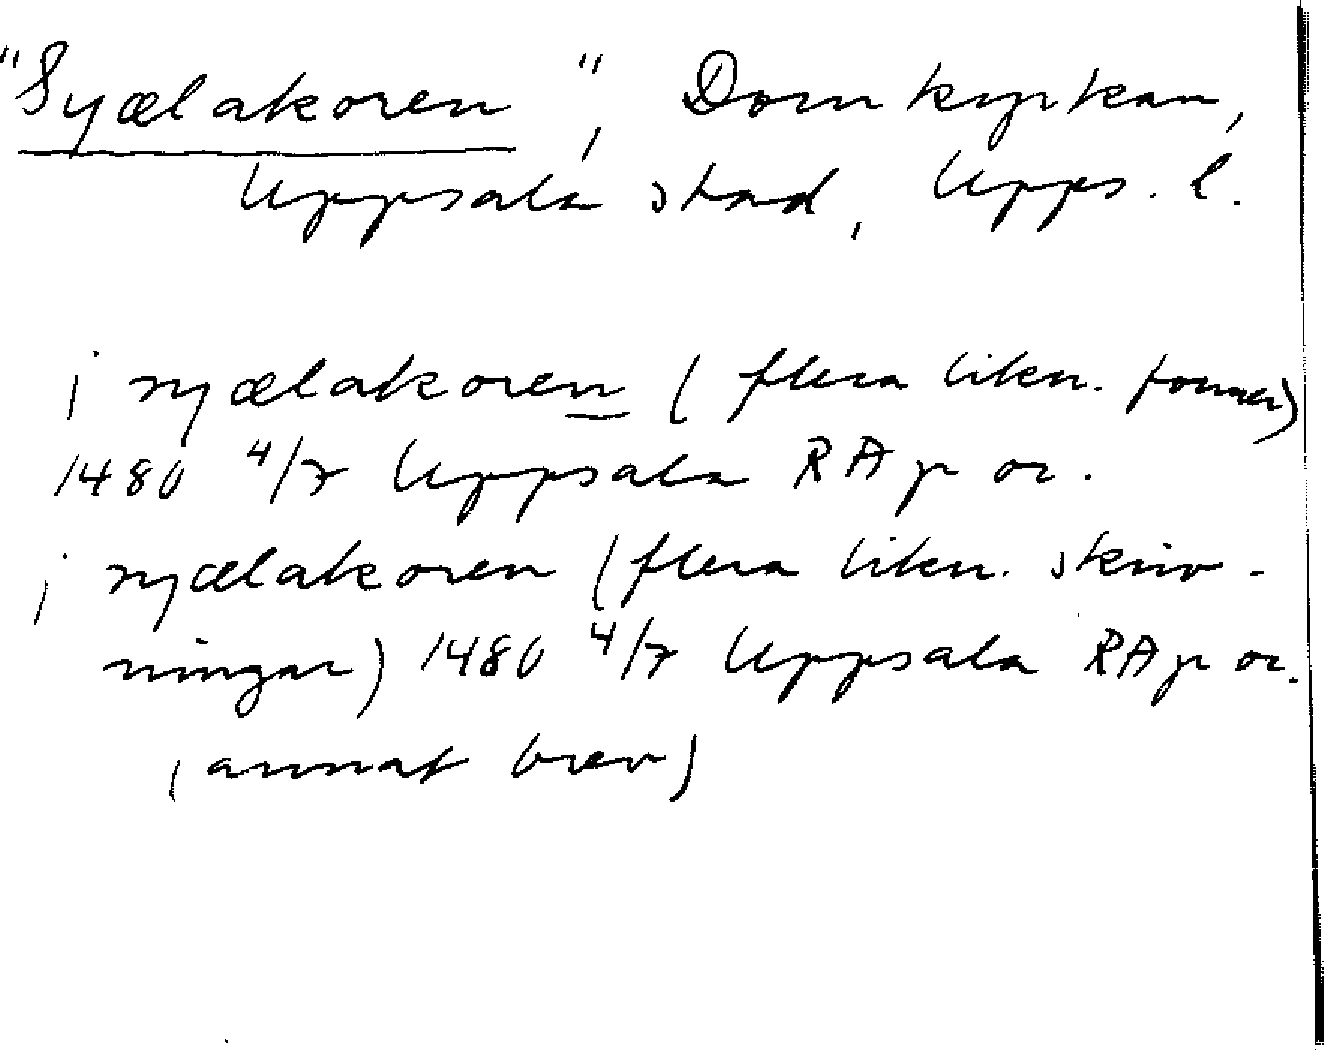 "Syælakoren", Domkyrkan,
Uppsala stad, Upps. l.
j syælakoren (flera likn. former)
1480 4/7 Uppsala RAp or.
j syælakoren (flera likn. skriv-
ningar) 1480 4/7 Uppsala RAp or.
(annat brev)